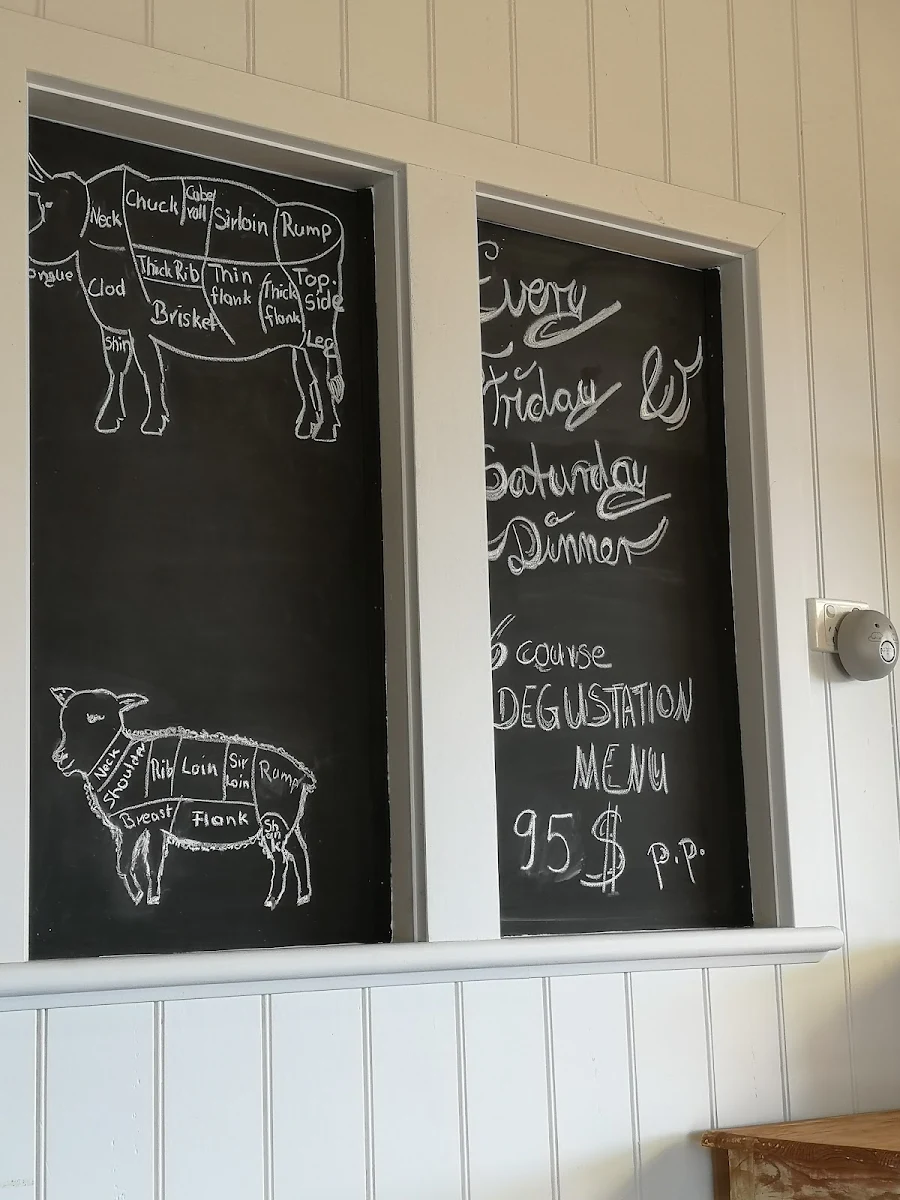 Neck
Chuck
Cube
roll
Sirloin
Rump
ongue
Clod
Thick Rib
Thin
flank
Thick
flank
Top.
side
Brisket
Shin
Leg
Neck
Shoulder
Rib
Loin
Sir
loin
Rump
Breast
Flank
Sh
an
k
Every
Friday &
Saturday
Dinner
6 course
DEGUSTATION
MENU
95 $ p.p.